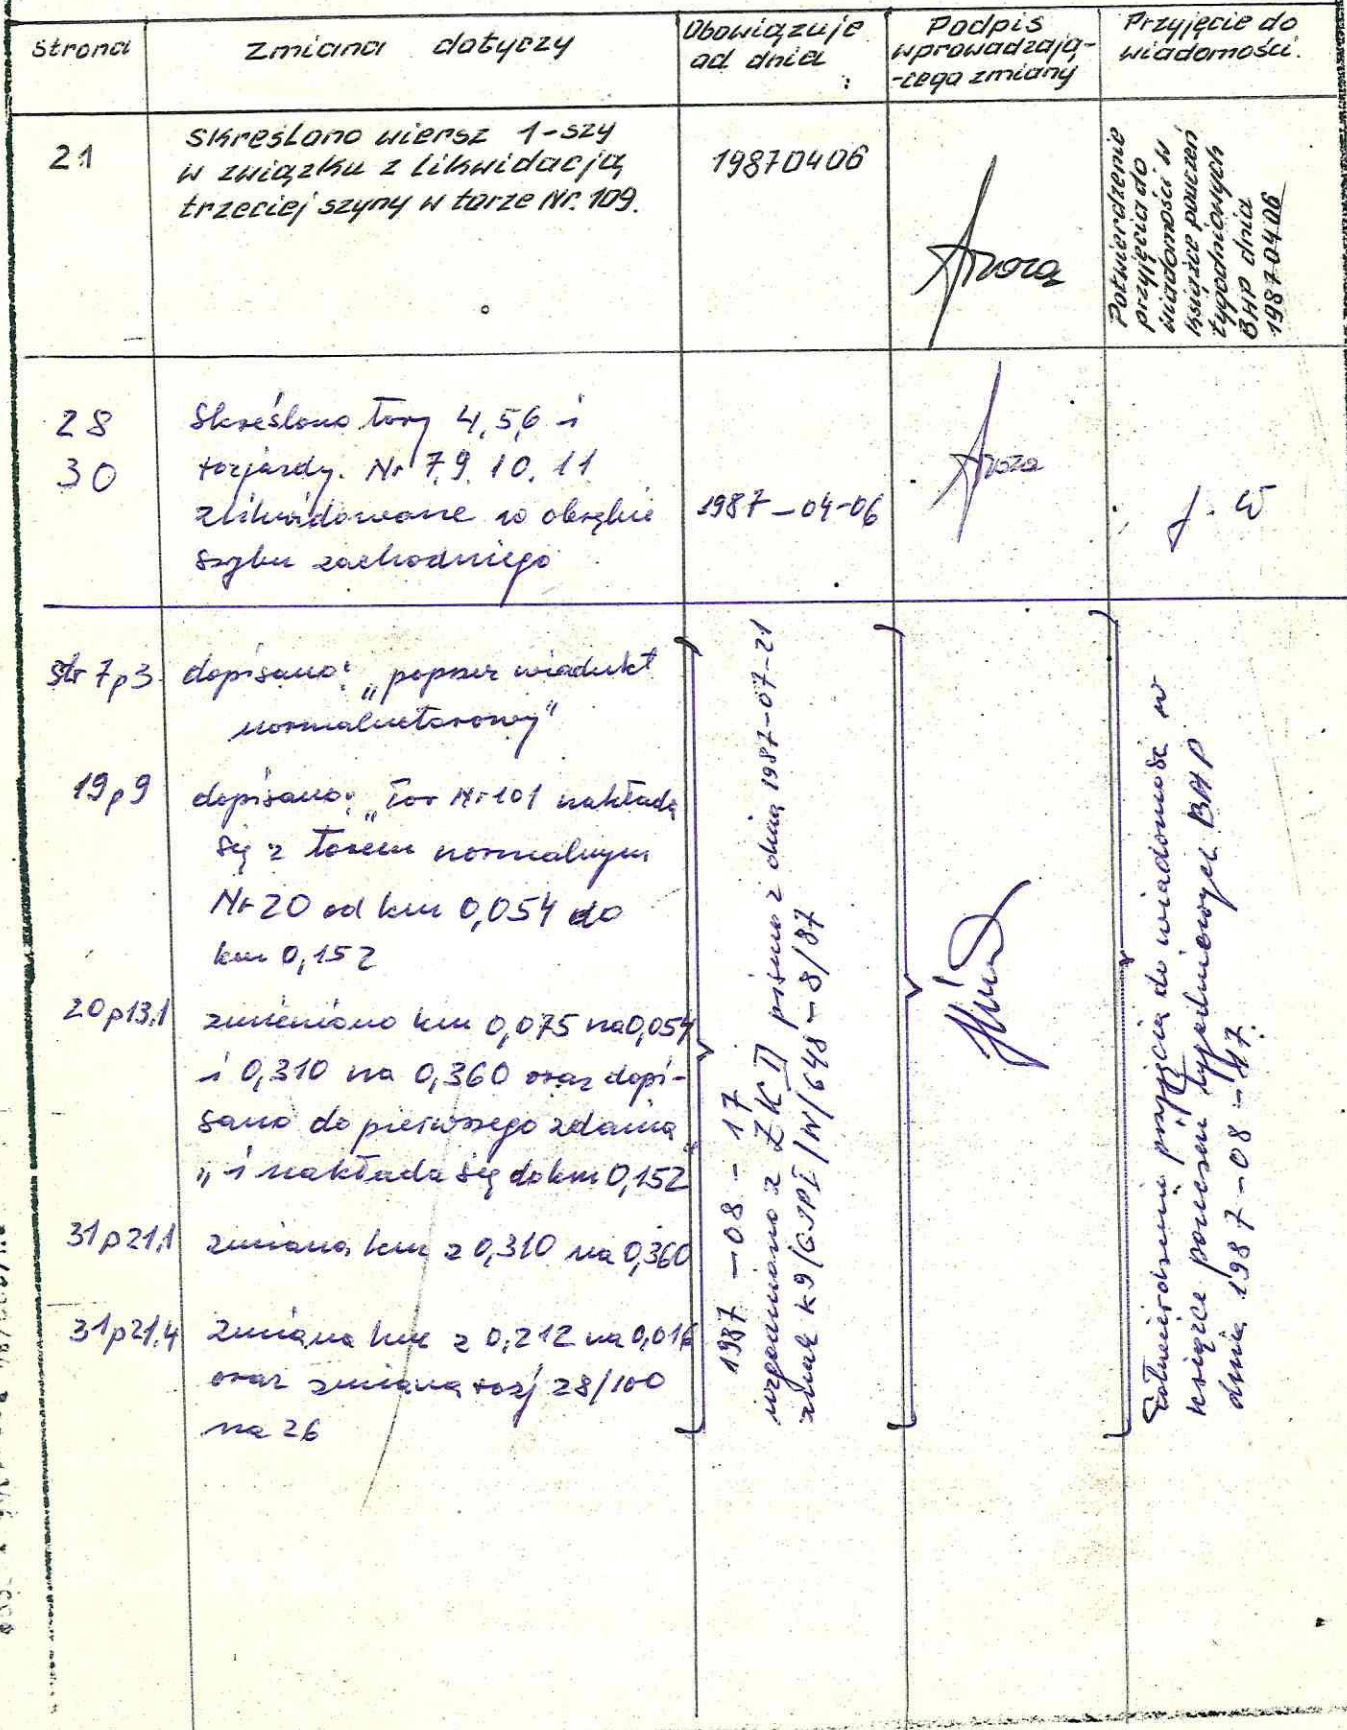 Strona
Zmiana dotyczy
Obowiązuje
od dnia
Podpis
wprowadzają-
-cego zmiany
Przyjęcie do
wiadomości.
21
Skreślono wiersz 1-szy
w związku z likwidacją
trzeciej szyny w torze Nr. 109.
19870406
Potwierdzenie
przyjęcia do
wiadomości w
książce pouczeń
tygodniowych
BHP dnia
19870406
28
30
Skreślono tory 4,5,6 i
rozjazdy. Nr 7.9.10.11
zlikwidowane w obrębie
szybu zachodniego
1987-04-06
J. W
str 7p3
dopisano: „poprzez wiadukt
normalnotorowy"
19p9
dopisano: „Tor Nr 101 nakłada
się z torem normalnym
Nr 20 od km 0,054 do
km 0,152
20p13.1
zmieniono km 0,075 na 0,054
i 0,310 na 0,360 oraz dopi-
sano do pierwszego zdania
„i nakłada się do km 0,152"
31p21.1
zmiana km z 0,310 na 0,360
31p21.4
zmiana km z 0,212 na 0,016
oraz zmiana rozj 28/100
na 26
1987-08-17
uzgodniono z ZKII pismo z dnia 1987-07-21
znak K9/GJPI/W/648-8/87
Potwierdzenie przyjęcia do wiadomości w
książce pouczeń tygodniowych BHP
dnia 1987-08-17.